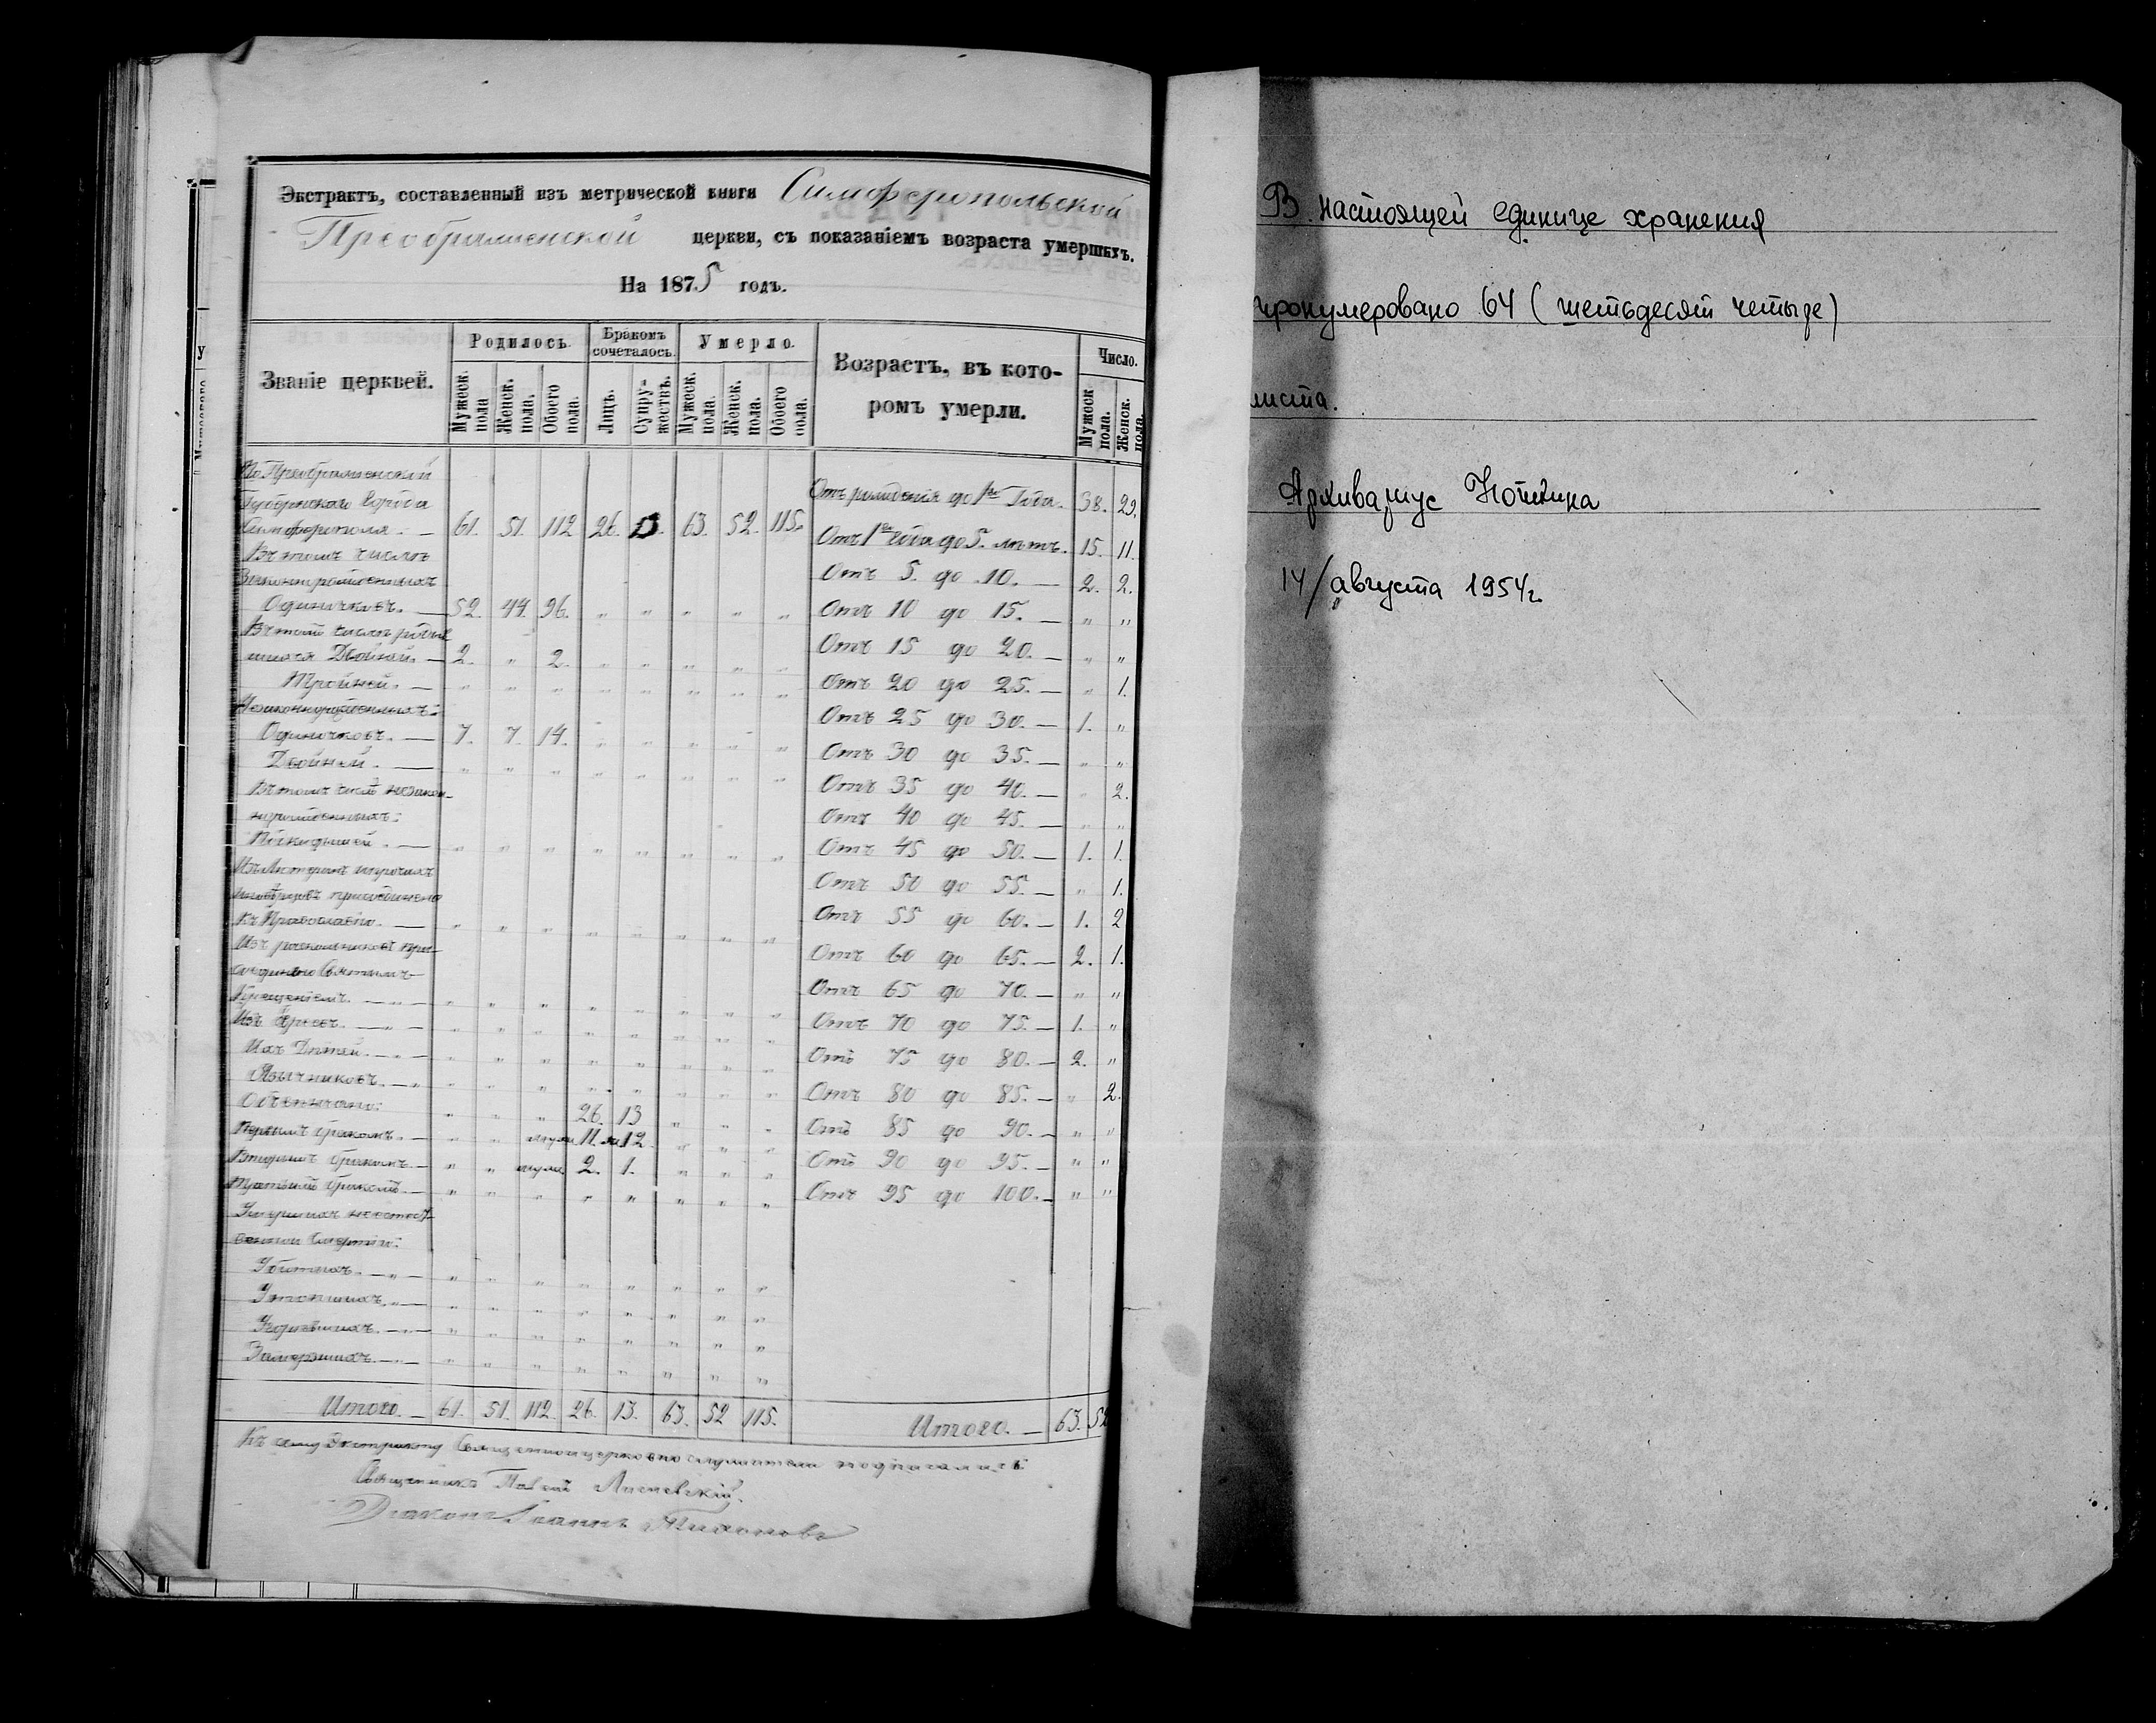 Экстрактъ, составленный изъ метрической книги Симферопольской
Преображенской церкви, съ показаніемъ возраста умершихъ.
На 1875 годъ.
Званіе церквей.
Родилось.
Бракомъ сочеталось.
Умерло.
Возрастъ, въ кото-
ромъ умерли.
Число.
Мужеск. пола
Женск. пола.
Обоего пола.
Лицъ.
Супру-жествъ.
Мужеск. пола.
Женск. пола.
Обоего пола.
Мужеск пола.
Женск. пола.
Преображенской
Губернскаго города
Симферополя. — 61. 51. 112 26. 13. 63. 52. 115.
Въ томъ числѣ
Законнорожденныхъ
Одиночковъ. — 52. 44. 96. " " " " "
Въ томъ числѣ родив
шихся Двойней. — 2. " 2. " " " " "
Тройней. — " " " " " " " "
Незаконнорожденныхъ:
Одиночковъ. — 7. 7. 14. " " " " "
Двойней. — " " " " " " " "
Въ томъ числѣ незакон-
норожденныхъ:
Подкидышей. — " " " " " " " "
къ Православію. — " " " " " " " "
Изъ раскольниковъ при-
Крещеніемъ. — " — " " " " " " " "
Изъ Евреевъ. — " — " " " " " " " "
Ихъ Дѣтей. — " — " " " " " " " "
Язычниковъ. — " " " " " " " " "
Обвѣнчано: " " " 26. 13 " " "
Первымъ бракомъ. — " " 11. 12. " " "
Вторымъ бракомъ. — " " 2. 1. " " "
Третьимъ бракомъ. — " " " " " " " "
Умершихъ неестест-
венною смертію:
Убитыхъ. — " — " " " " " " " "
Утопшихъ. " — " " " " " " " "
Угорѣвшихъ. — " — " " " " " " " "
Замерзшихъ. — " — " " " " " " " "
Итого. — 61. 51. 112. 26. 13. 63. 52 115.
Отъ рожденія до 1го Года. 38. 29.
Отъ 1го Года до 5. лѣтъ. 15. 11.
Отъ 5. до 10. — 2. 2.
Отъ 10 до 15. — " "
Отъ 15 до 20. — " "
Отъ 20 до 25. — " 1.
Отъ 25 до 30. — 1. "
Отъ 30 до 35. — " "
Отъ 35 до 40. — " 2.
Отъ 40 до 45. — " "
Отъ 45 до 50. — 1. 1.
Отъ 50 до 55. — " 1.
Отъ 55 до 60. — 1. 2
Отъ 60 до 65. — 2. 1.
Отъ 65 до 70. — " "
Отъ 70 до 75. — 1. "
Отъ 75 до 80. — 2. "
Отъ 80 до 85. — " 2.
Отъ 85 до 90. — " "
Отъ 90 до 95. — " "
Отъ 95 до 100. — " "
Итого. — 63. 52
Къ сему Экстракту Священноцерковнослужители подписались
Священникъ
Діаконъ Іоаннъ Тихоновъ
В настоящей единице хранения
пронумеровано 64 (шестьдесят четыре)
листа.
Архивариус
14/августа 1954г.